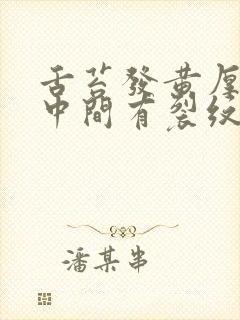 舌苔發黃厚
中間有裂紋
潘某串